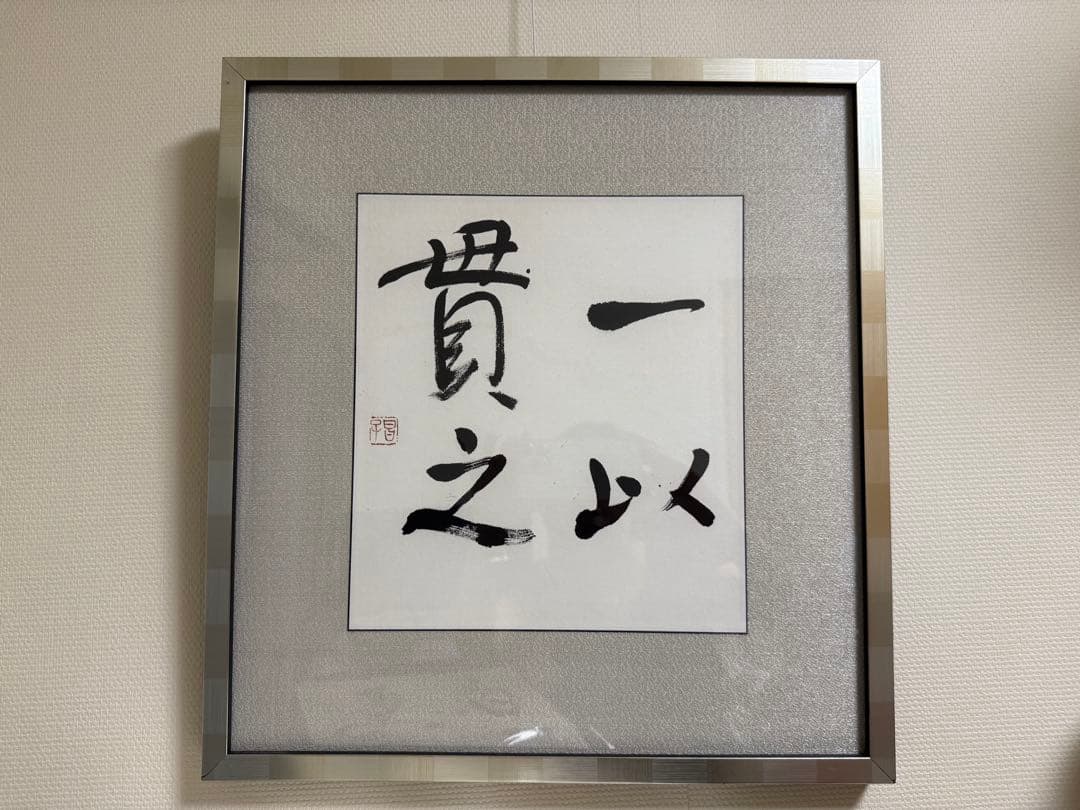 一以
貫之